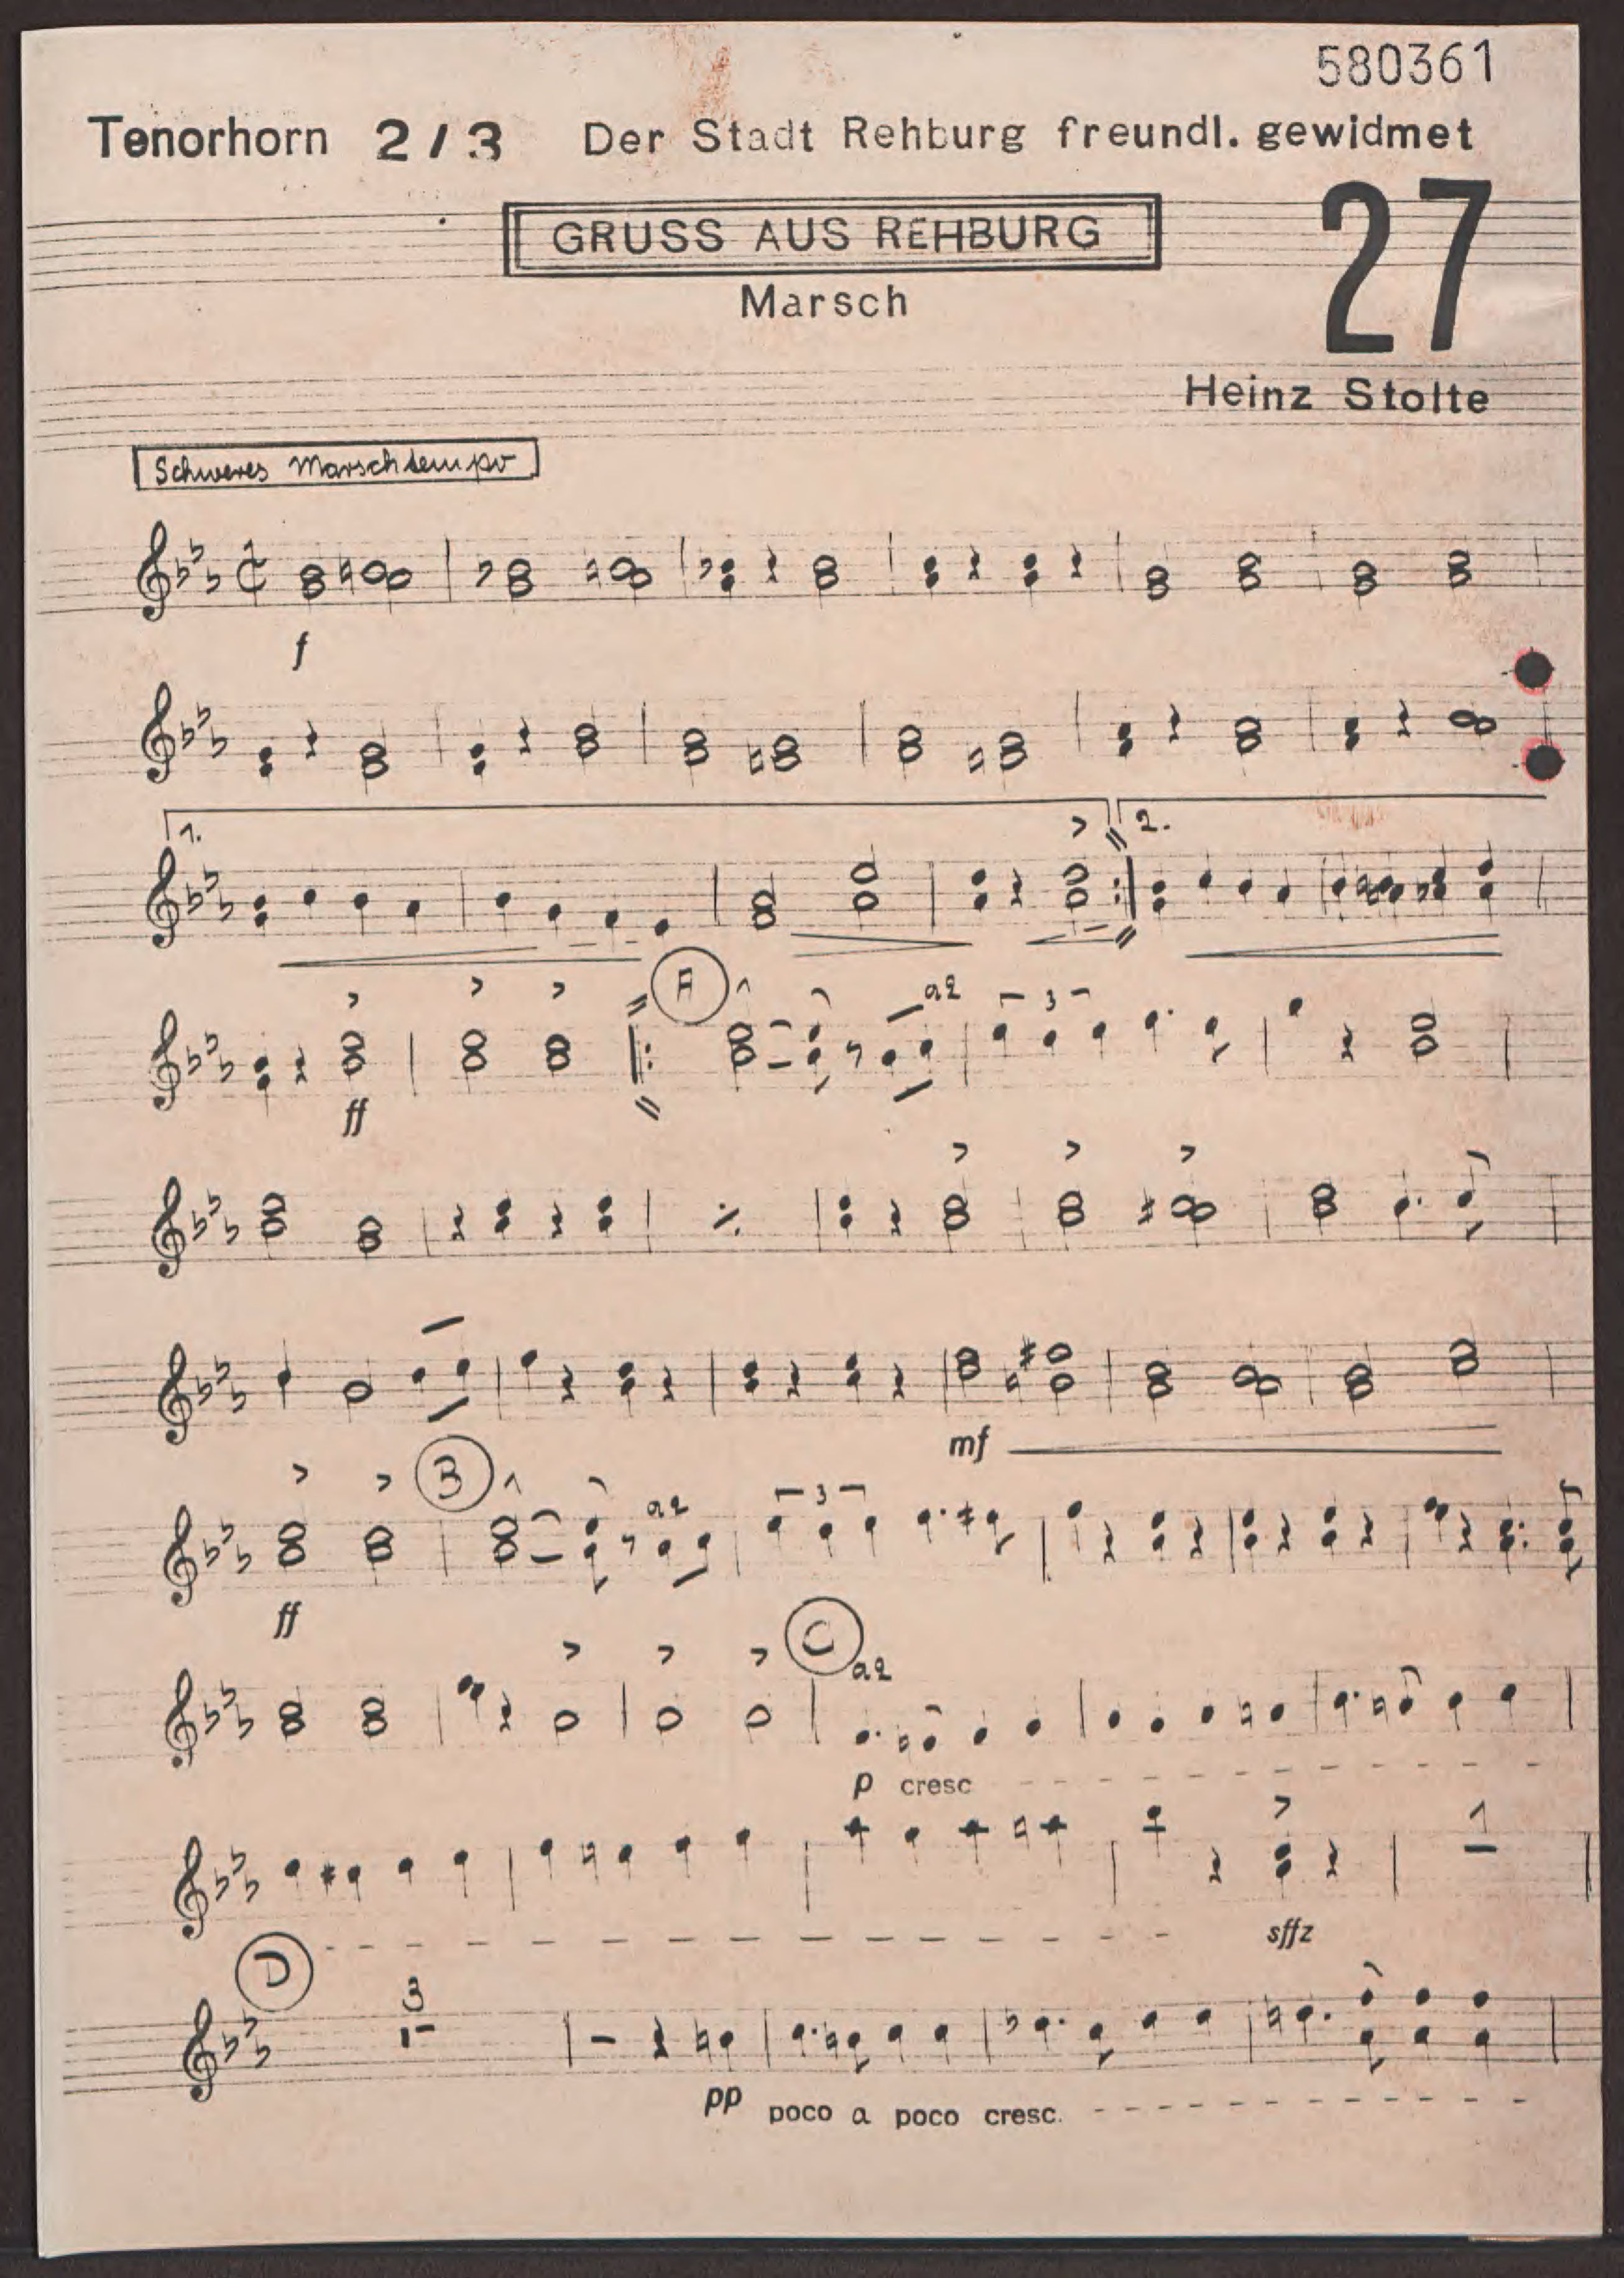 580361
Tenorhorn 2/3 Der Stadt Rehburg freundl. gewidmet
GRUSS AUS REHBURG
27
Marsch
Heinz Stolte
Schweres Marschtempo
f
1. 2.
A
a2
3
ff
mf
B
a2
3
ff
C
a2
p cresc
1
sffz
D
3
pp poco a poco cresc.